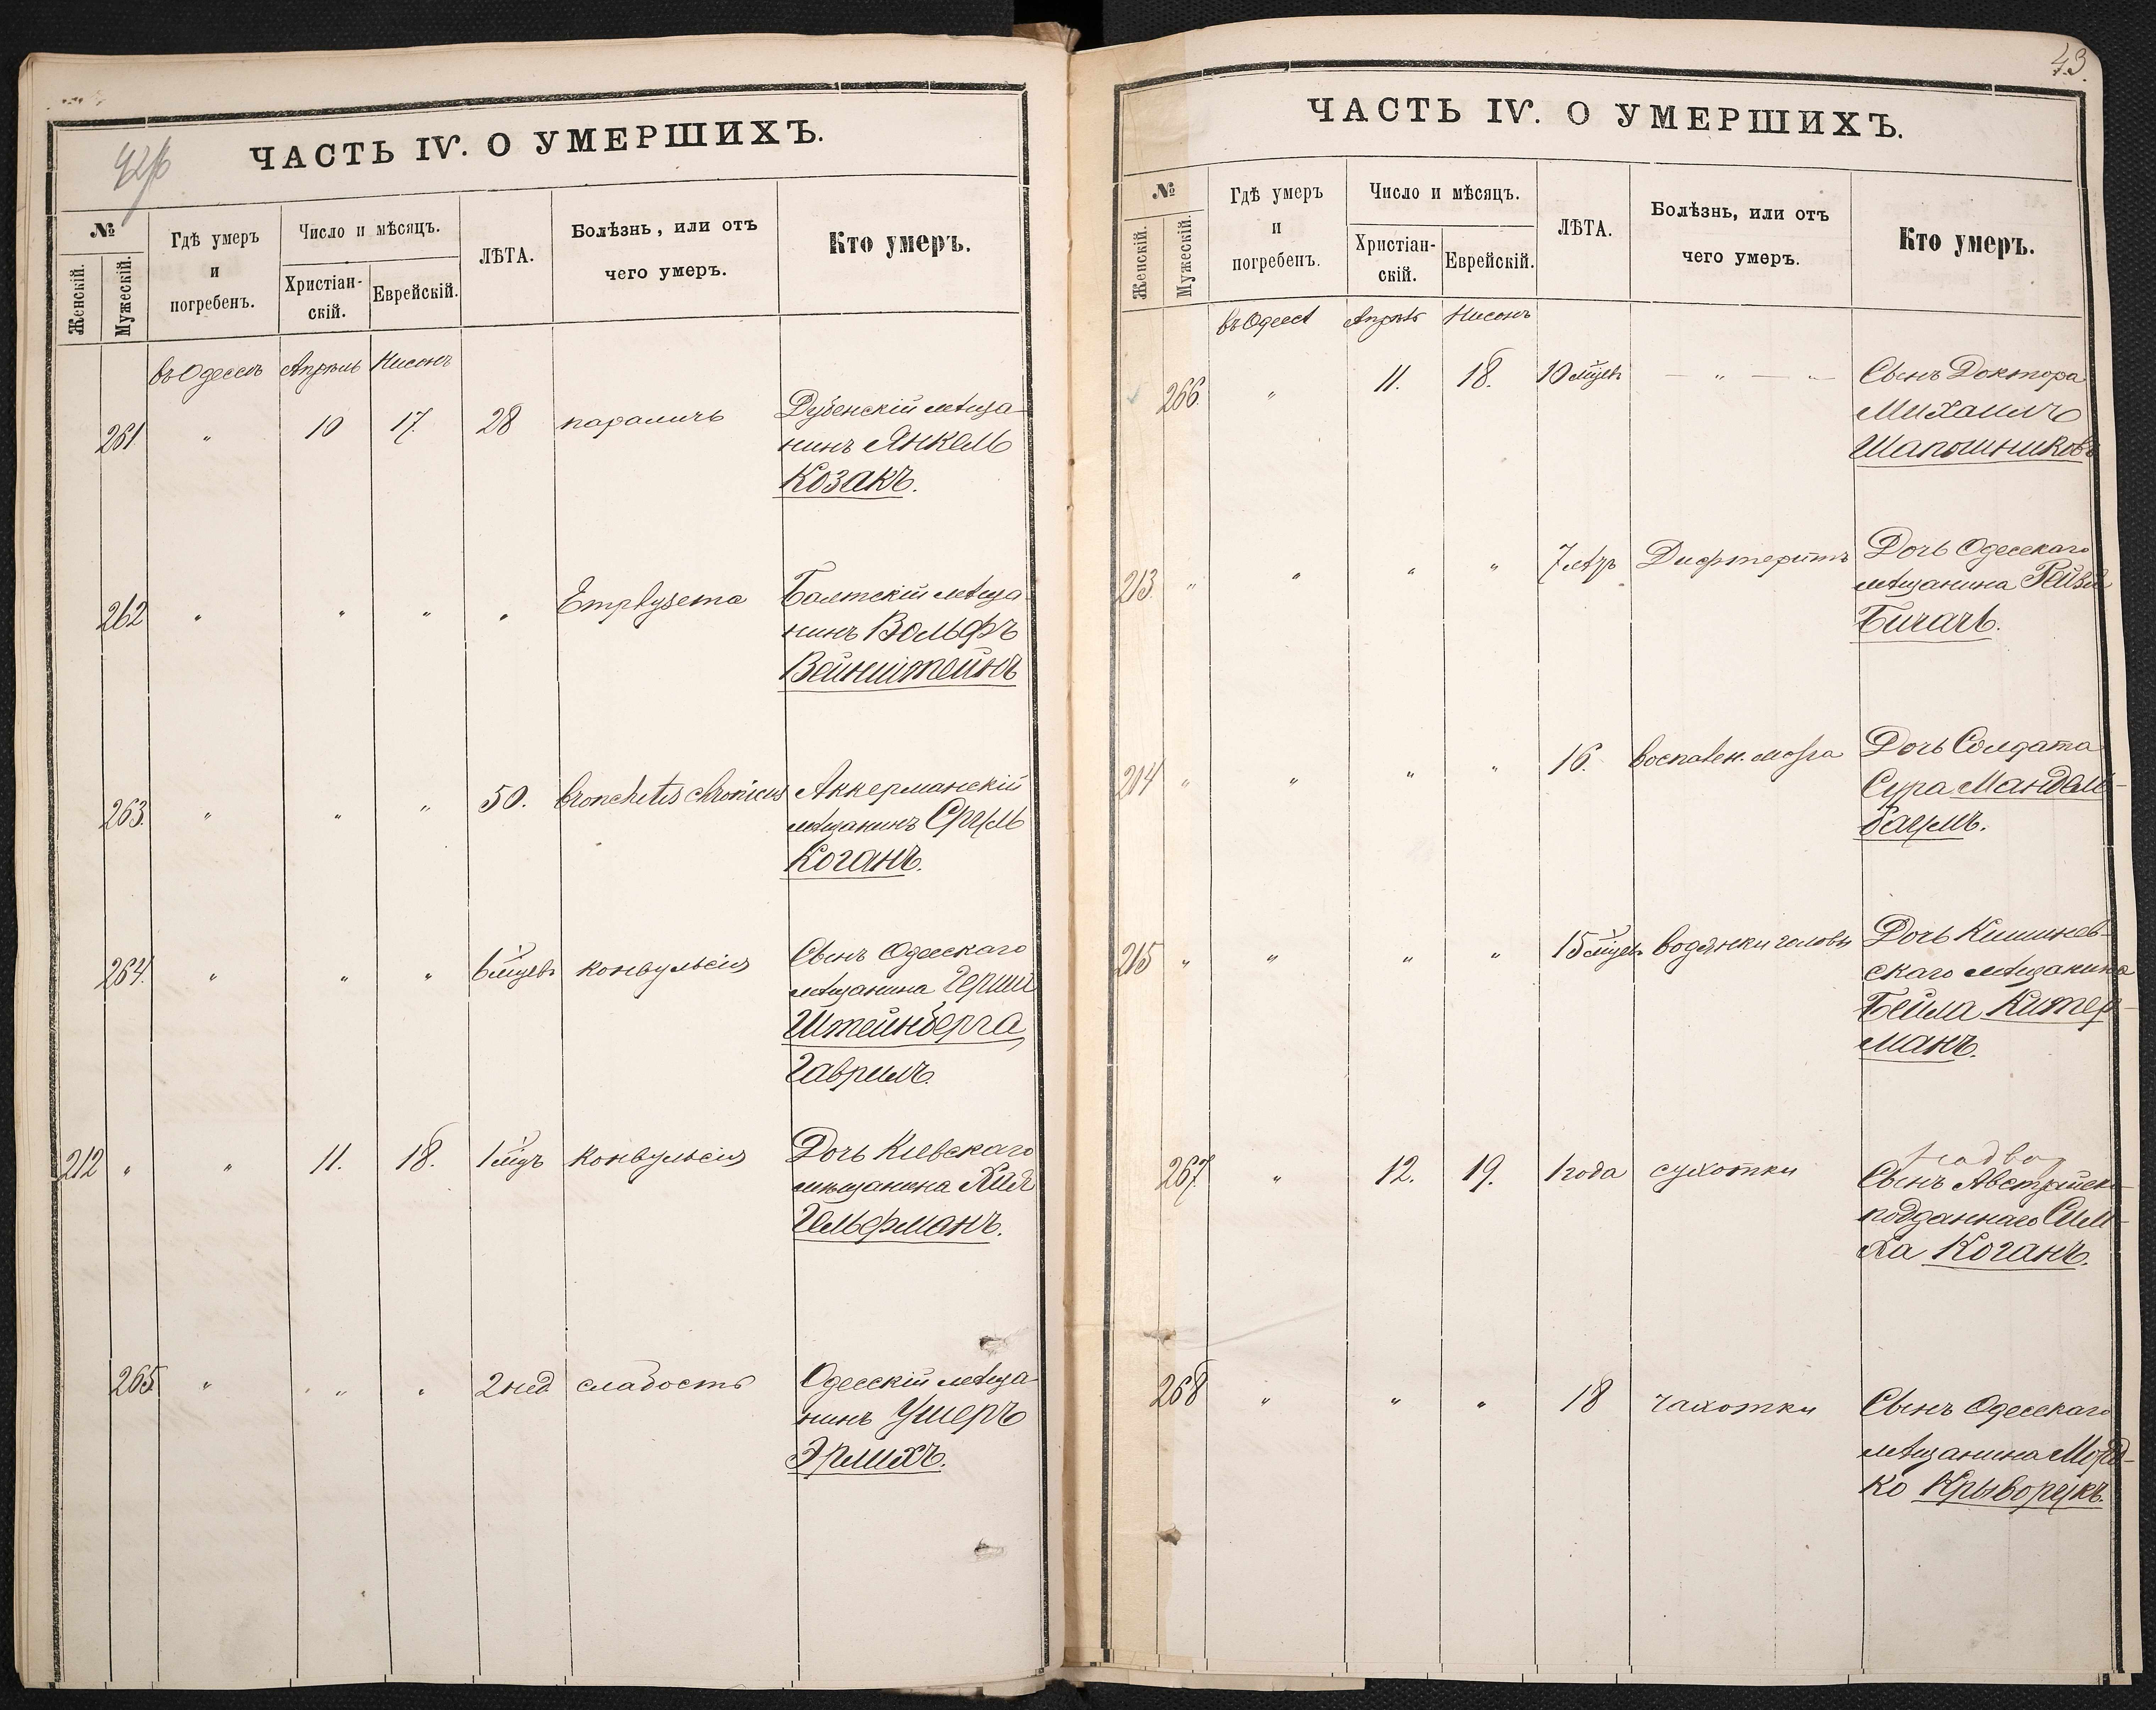 42/б
ЧАСТЬ IV. О УМЕРШИХЪ.
№
Женскій.
Мужескій.
Гдѣ умеръ
и
погребенъ.
Число и мѣсяцъ.
Христіан-
скій.
Еврейскій.
ЛѢТА.
Болѣзнь, или отъ
чего умеръ.
Кто умеръ.
въ Одессѣ Апрѣль Нисонъ
261 " 10 17. 28 параличъ Дубенскій мѣща-
нинъ Янкель
Козакъ.
262 " " " " Emphysema Балтскій мѣща-
нинъ Вольфъ
Вейнштейнъ
263. " " " 50. bronchitis chronicus Аккерманскій
мѣщанинъ Сруль
Коганъ.
264. " " " 6 мцевъ конвульсія Сынъ Одесскаго
мѣщанина Герши
Штейнберга,
Гаврилъ.
212 " " 11. 18. 1 мцъ конвульсія Дочь Кіевскаго
мѣщанина Хая
Гельфманъ.
265. " " " 2 нед слабость Одесскій мѣща-
нинъ Ушеръ
Эрлихъ.
43.
ЧАСТЬ IV. О УМЕРШИХЪ.
№
Женскій.
Мужескій.
Гдѣ умеръ
и
погребенъ.
Число и мѣсяцъ.
Христіан-
скій.
Еврейскій.
ЛѢТА.
Болѣзнь, или отъ
чего умеръ.
Кто умеръ.
въ Одессѣ Апрѣль Нисонъ
266. " 11. 18. 10 мцевъ — " — " — Сынъ Доктора
Михаилъ
Шапошниковъ
213. " " " " 7 лѣтъ Дифтеритъ Дочь Одесскаго
мѣщанина Рейзя
Бичачъ.
214 " " " " 16. воспален. мозга Дочь Солдата
Сура Мандель-
баумъ.
215 " " " " 15 мцевъ водянки головы Дочь Кишинев-
скаго мѣщанина
Бейла Китер-
манъ.
267. " 12. 19. 1 года сухотки Сынъ Австрійск-
подданнаго Сим-
ха Коганъ.
268 " " " 18 чахотки Сынъ Одесскаго
мѣщанина Морд-
ко Крыворукъ.